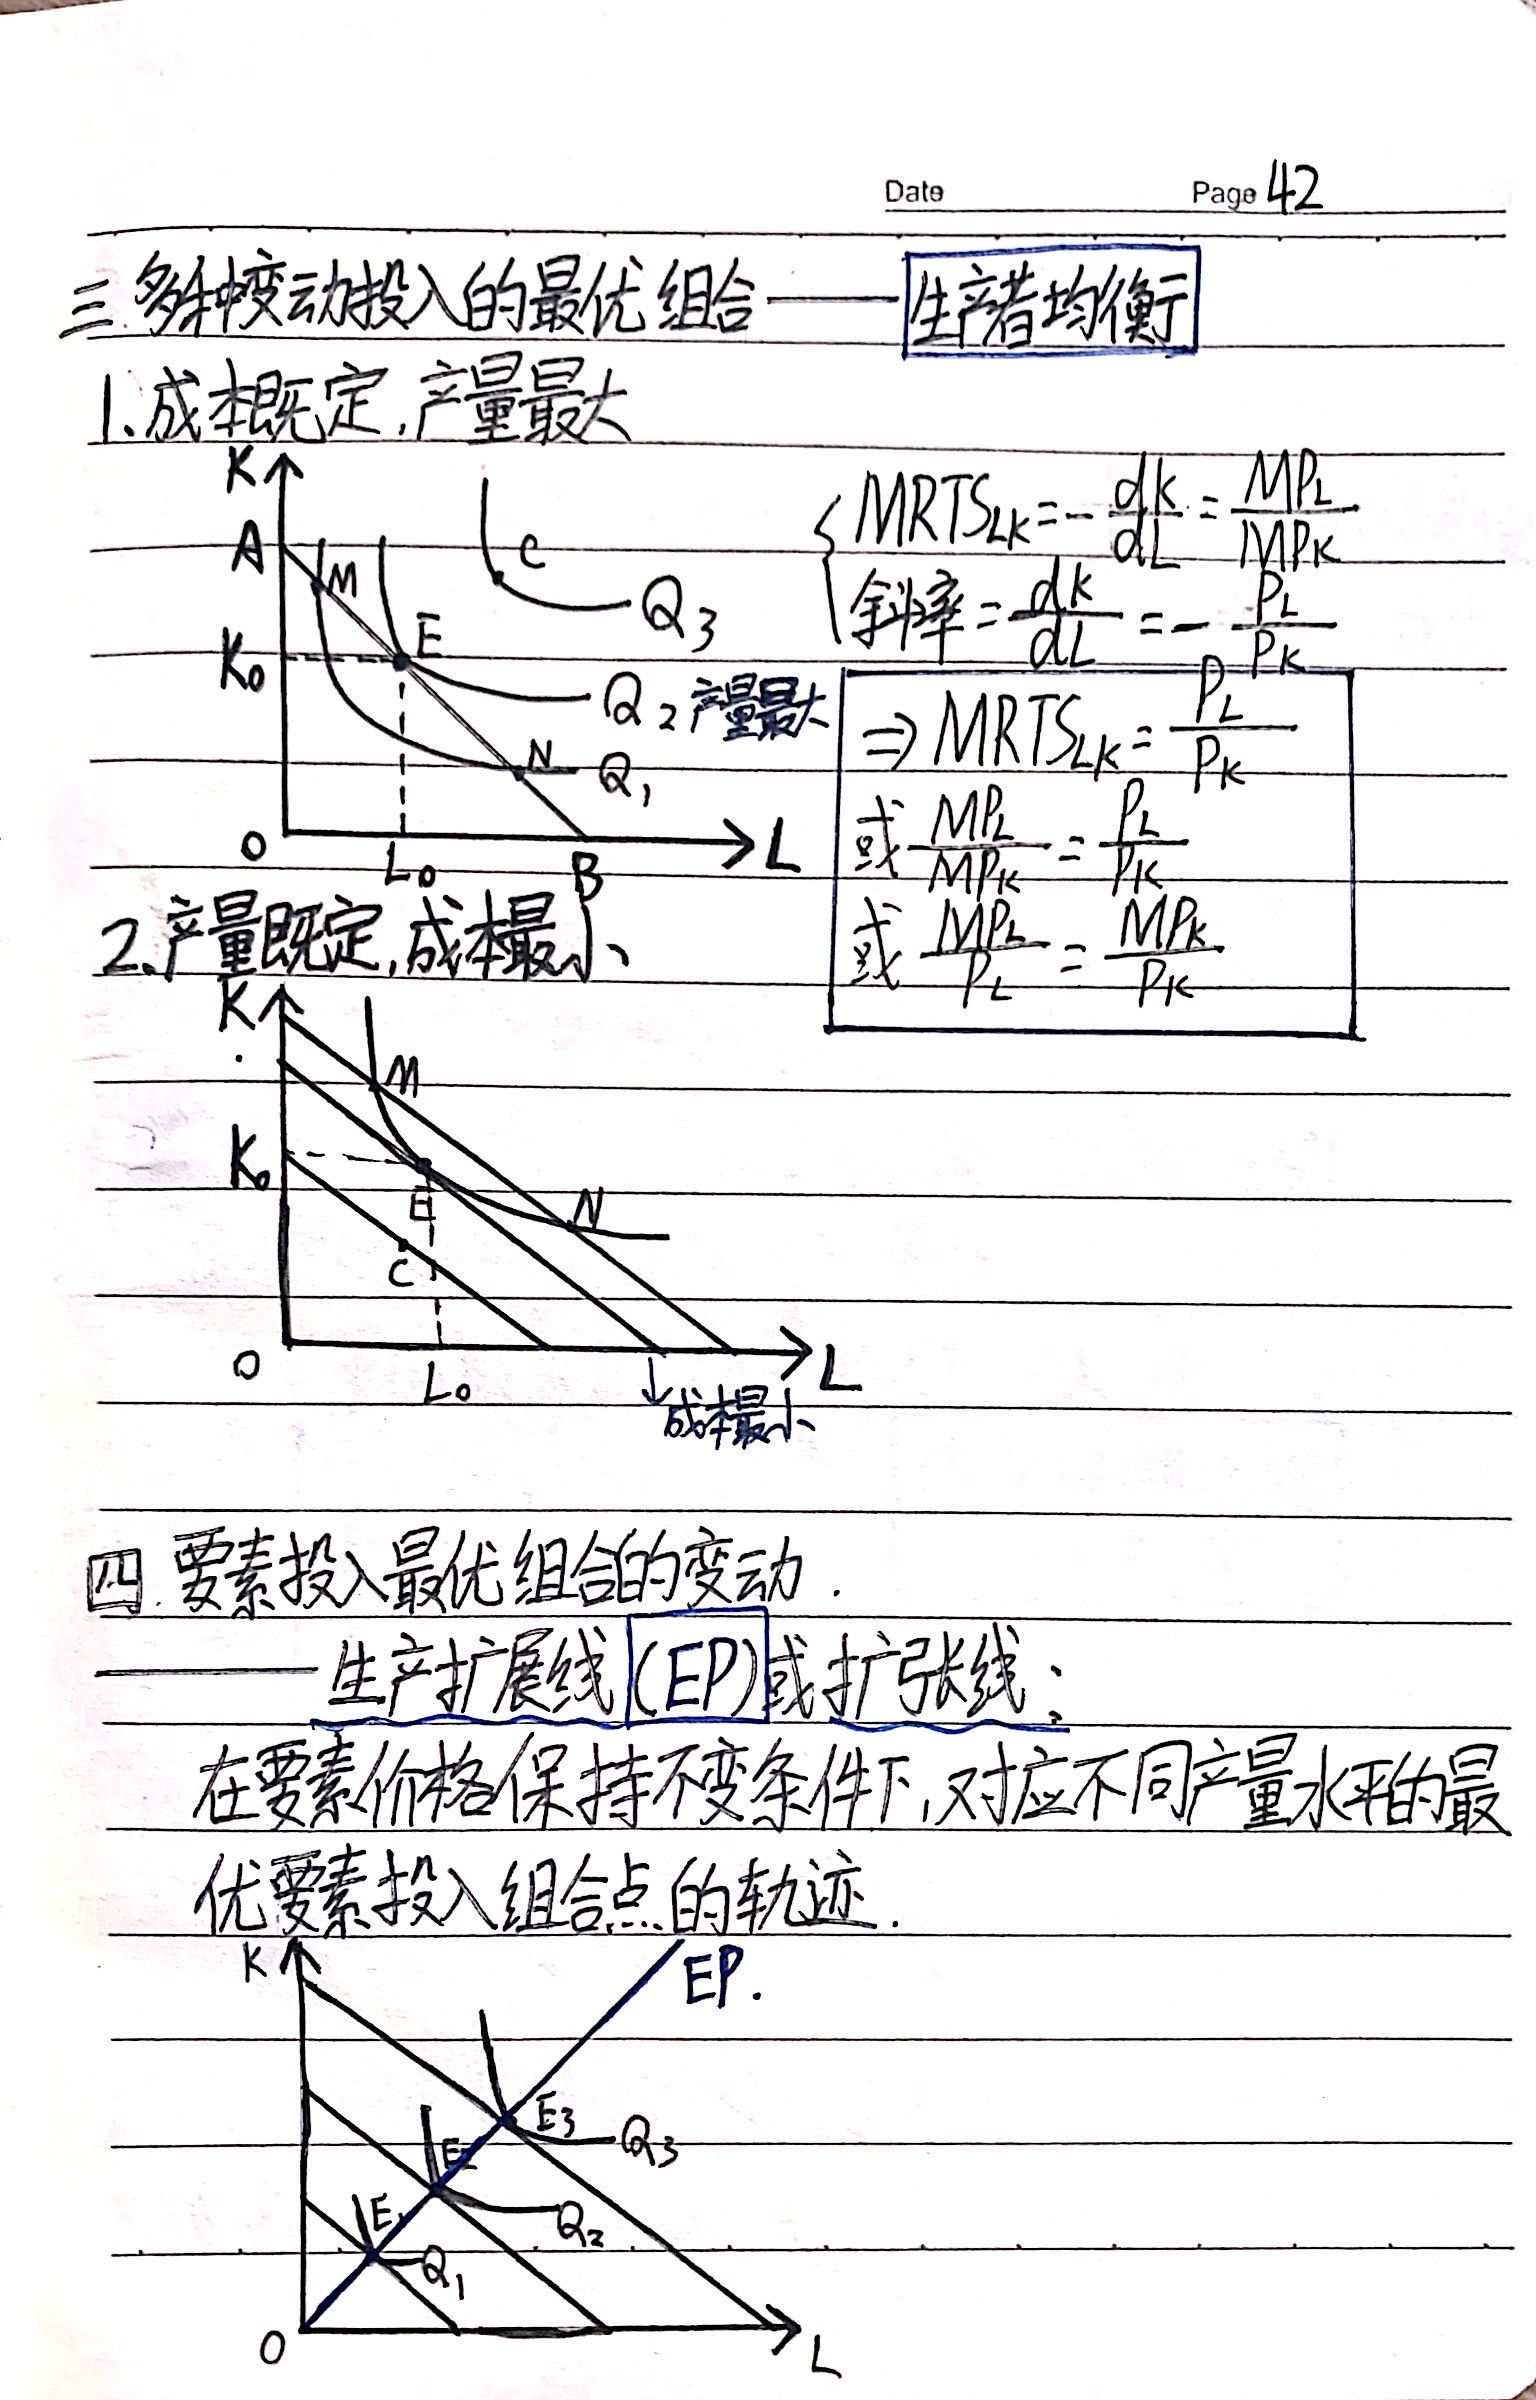 Date Page 42
三.多种变动投入的最优组合——生产者均衡
1.成本既定,产量最大
K
A
M
C
E
Q3
K0
Q2 产量最大
N
Q1
O
L0
B
L
MRTSLK=-dK/dL=MPL/MPK
斜率=dK/dL=-PL/PK
⇒MRTSLK=PL/PK
或 MPL/MPK=PL/PK
或 MPL/PL=MPK/PK
2.产量既定,成本最小
K
M
K0
E
N
C
O
L0
L
↓成本最小
四.要素投入最优组合的变动.
——生产扩展线(EP)或扩张线:
在要素价格保持不变条件下,对应不同产量水平的最
优要素投入组合点的轨迹.
K
EP.
E3
Q3
E2
Q2
E1
Q1
O
L